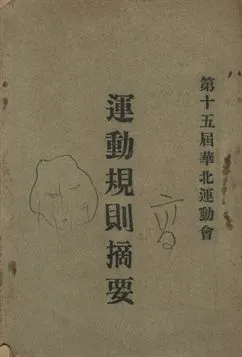 第十五屆華北運動會
運動規則摘要